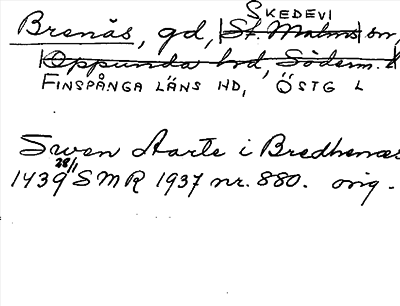 SKEDEVI
Brenäs, gd, St. Malms sn,
Oppunda hd, Söderm. l
FINSPÅNGA LÄNS HD, ÖSTG L
Swen Aarte i Bredhenæs
28/1
1439 SMR 1937 nr. 880. orig.